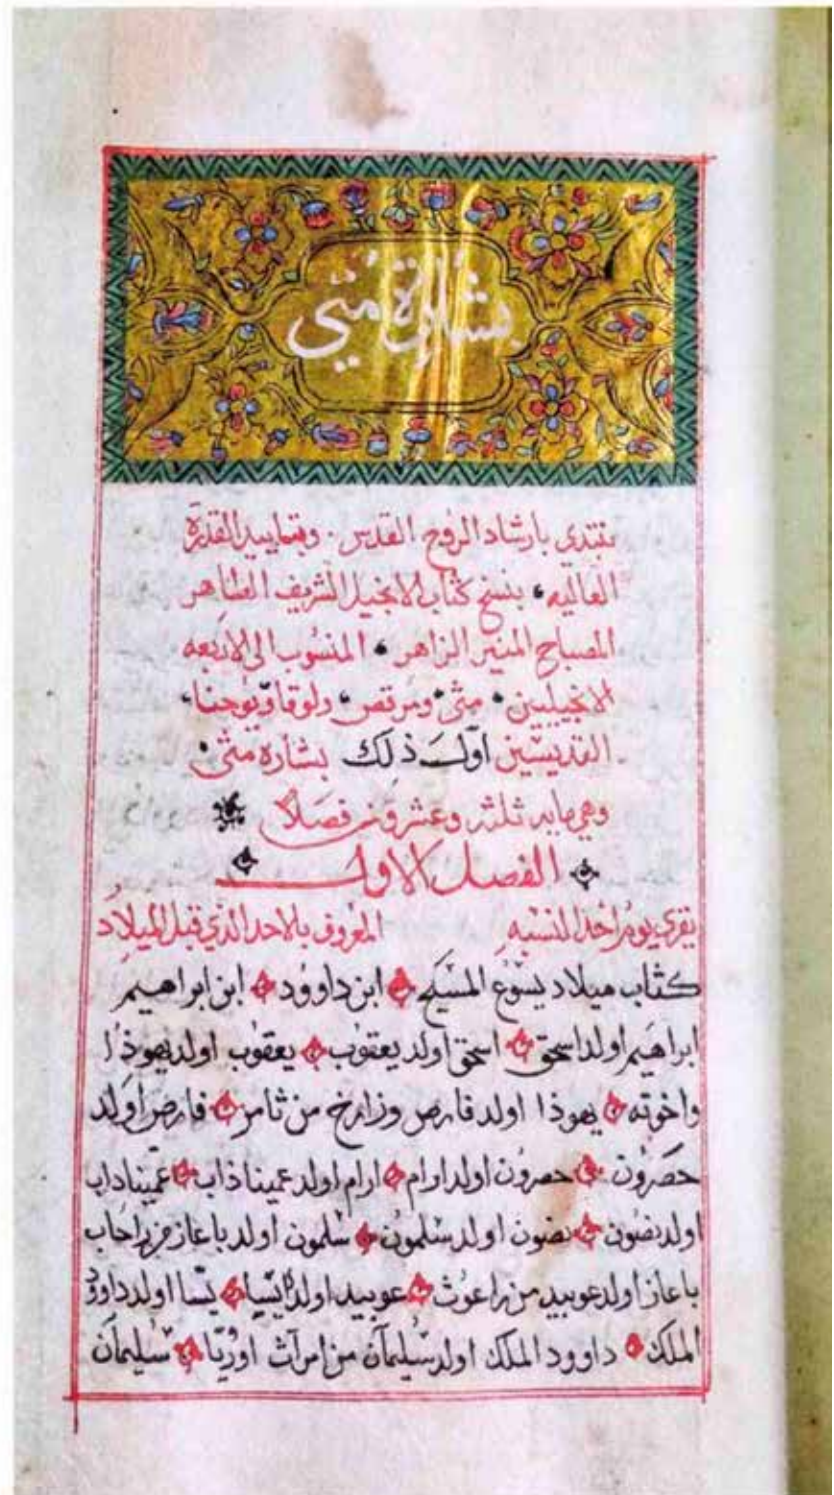 بشارة متي
نبتدي بارشاد الروح القدس. وبتاييد القدرة
العاليه، بنسخ كتاب الانجيل الشريف الطاهر
المصباح المنير الزاهر، المنسوب الى الاربعه
الانجيليين، متى، ومرقص، ولوقا ويوحنا،
القديسين اول ذلك بشارة متى،
وهي مايه وعشرون فصلاً
الفصل الاول
يقرى يوم احد النسبه المعروف بالاحد الذي قبل الميلاد
كتاب ميلاد يسوع المسيح ابن داوود ابن ابراهيم
ابراهيم اولد اسحق اسحق اولد يعقوب يعقوب اولد يهوذا
واخوته يهوذا اولد فارص وزارخ من ثامر فارص اولد
حصرون حصرون اولد ارام ارام اولد عميناذاب عميناداب
اولد نصون نصون اولد سلمون سلمون اولد باعاز من راحاب
باعاز اولد عوبيد من راعوث عوبيد اولد يسا يسا اولد داوود
الملك داوود الملك اولد سليمان من امراة اوريا سليمان